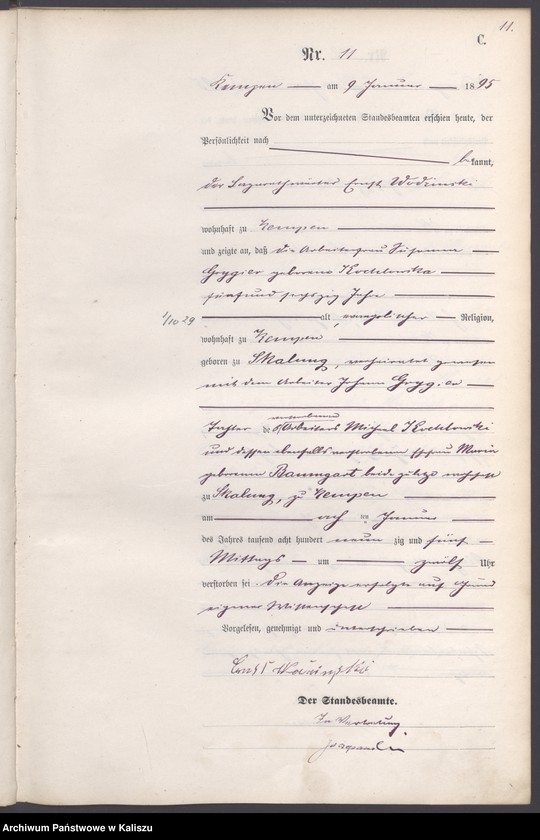 11.
C.
Nr. 11
Kempen am 9 Januar 1895
Vor dem unterzeichneten Standesbeamten erschien heute, der
Persönlichkeit nach
bekannt,
der Lazarethwärter Ernst Wodzinski
wohnhaft zu Kempen
und zeigte an, daß die Arbeiterfrau Susanna
Grygier geborene Kochlowska
fünfundsechszig Jahre
1/10 29 alt, evangelischer Religion,
wohnhaft zu Kempen
geboren zu Skalung, verheirathet gewesen
mit dem Arbeiter Johann Grygier
verstorbenen
Tochter des Arbeiters Michael Kochlowski
und dessen ebenfalls verstorbenen Ehefrau Maria
geborenen Baumgart beide zuletzt wohnhaft
zu Skalung, zu Kempen
am acht ten Januar
des Jahres tausend acht hundert neun zig und fünf
Mittags um zwölf Uhr
verstorben sei. Die Anzeige erfolgte auf Grund
eigener Wissenschaft
Vorgelesen, genehmigt und unterschrieben
Ernst Wodzinski
Der Standesbeamte.
In Vertretung
Archiwum Państwowe w Kaliszu